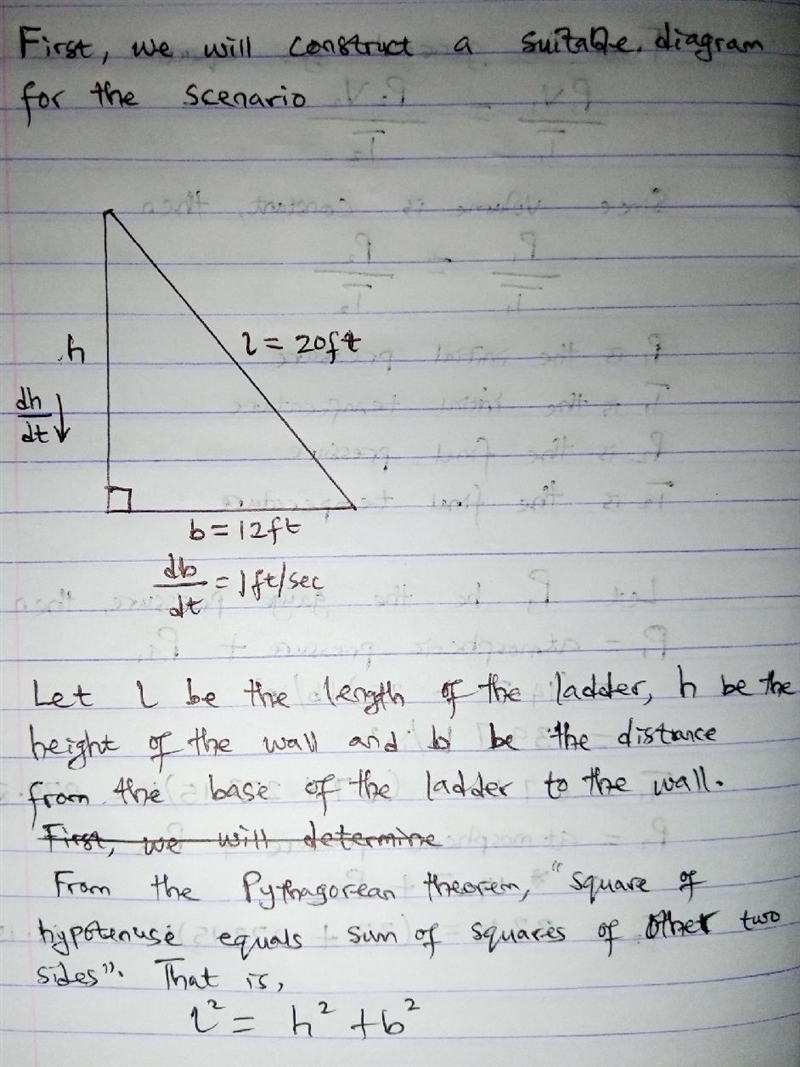 First, we will construct a suitable diagram
for the scenario
h
l = 20ft
dh
dt
b = 12ft
db
dt
= 1ft/sec
Let l be the length of the ladder, h be the
height of the wall and b be the distance
from the base of the ladder to the wall.
First, we will determine
From the Pythagorean theorem, "square of
hypotenuse equals sum of squares of other two
sides". That is,
l² = h² + b²